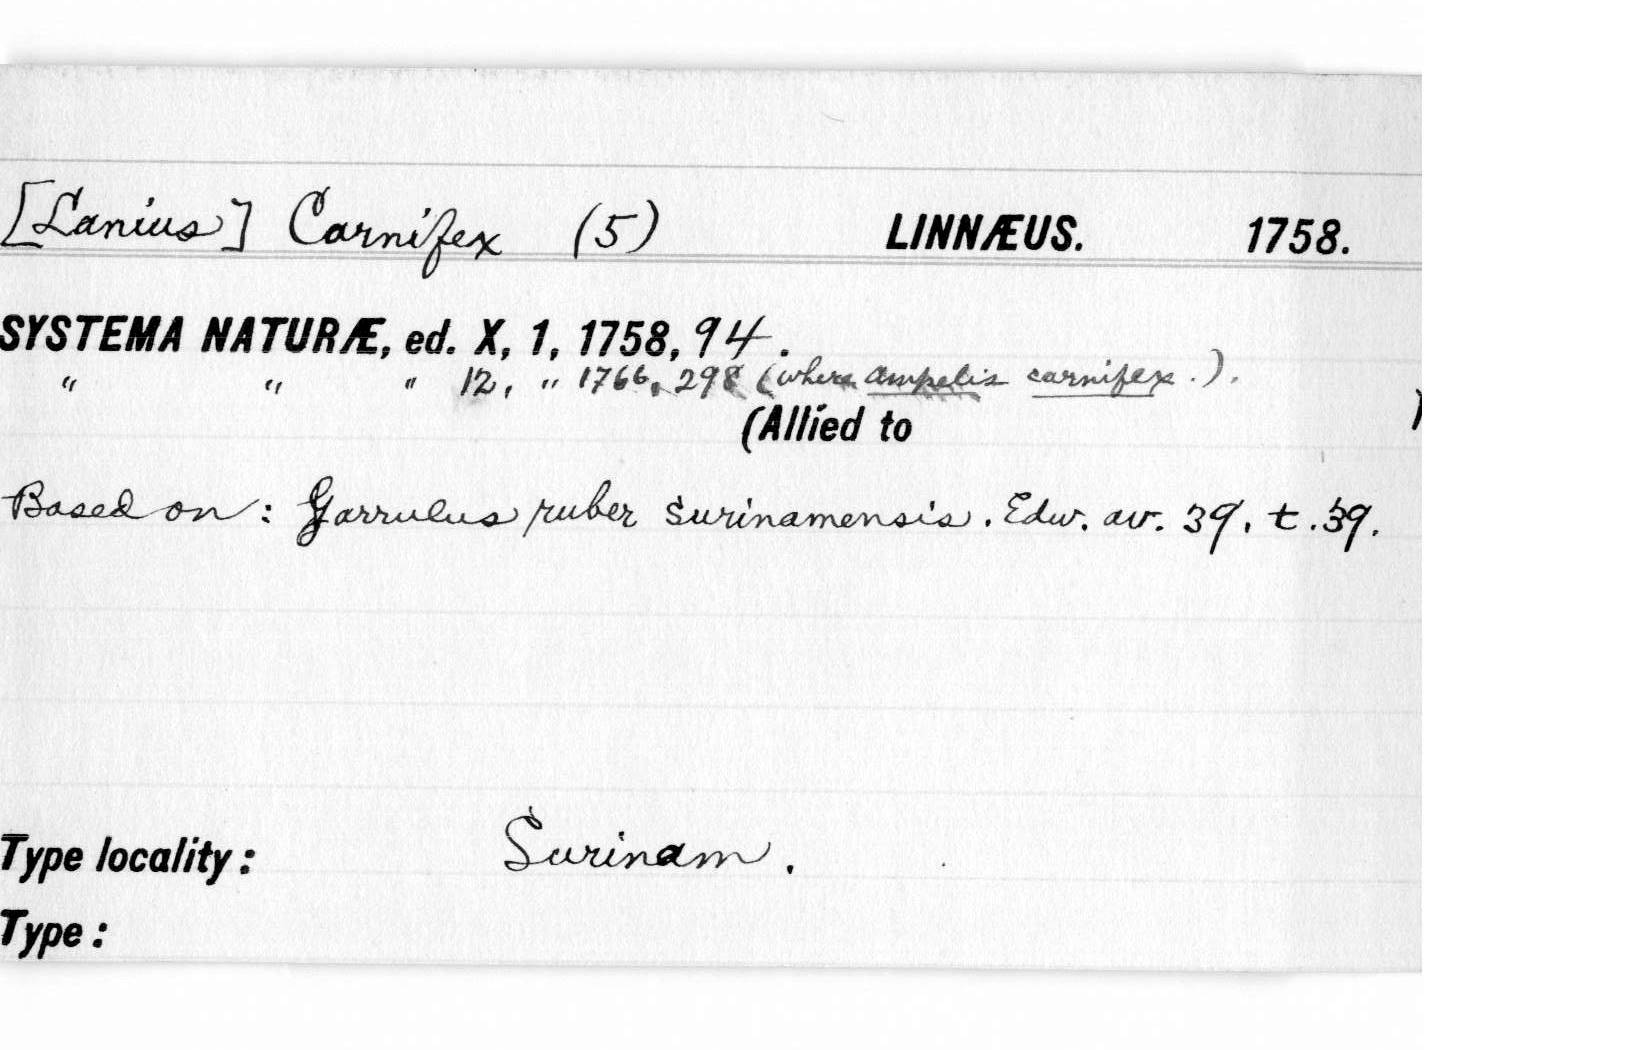 [Lanius] Carnifex (5) LINNÆUS. 1758.
SYSTEMA NATURÆ, ed. X, 1, 1758, 94.
" " " 12, " 1766, 298 (where Ampelis carnifex.).
(Allied to )
Based on: Garrulus ruber surinamensis. Edw. av. 39. t. 39.
Type locality: Surinam.
Type: